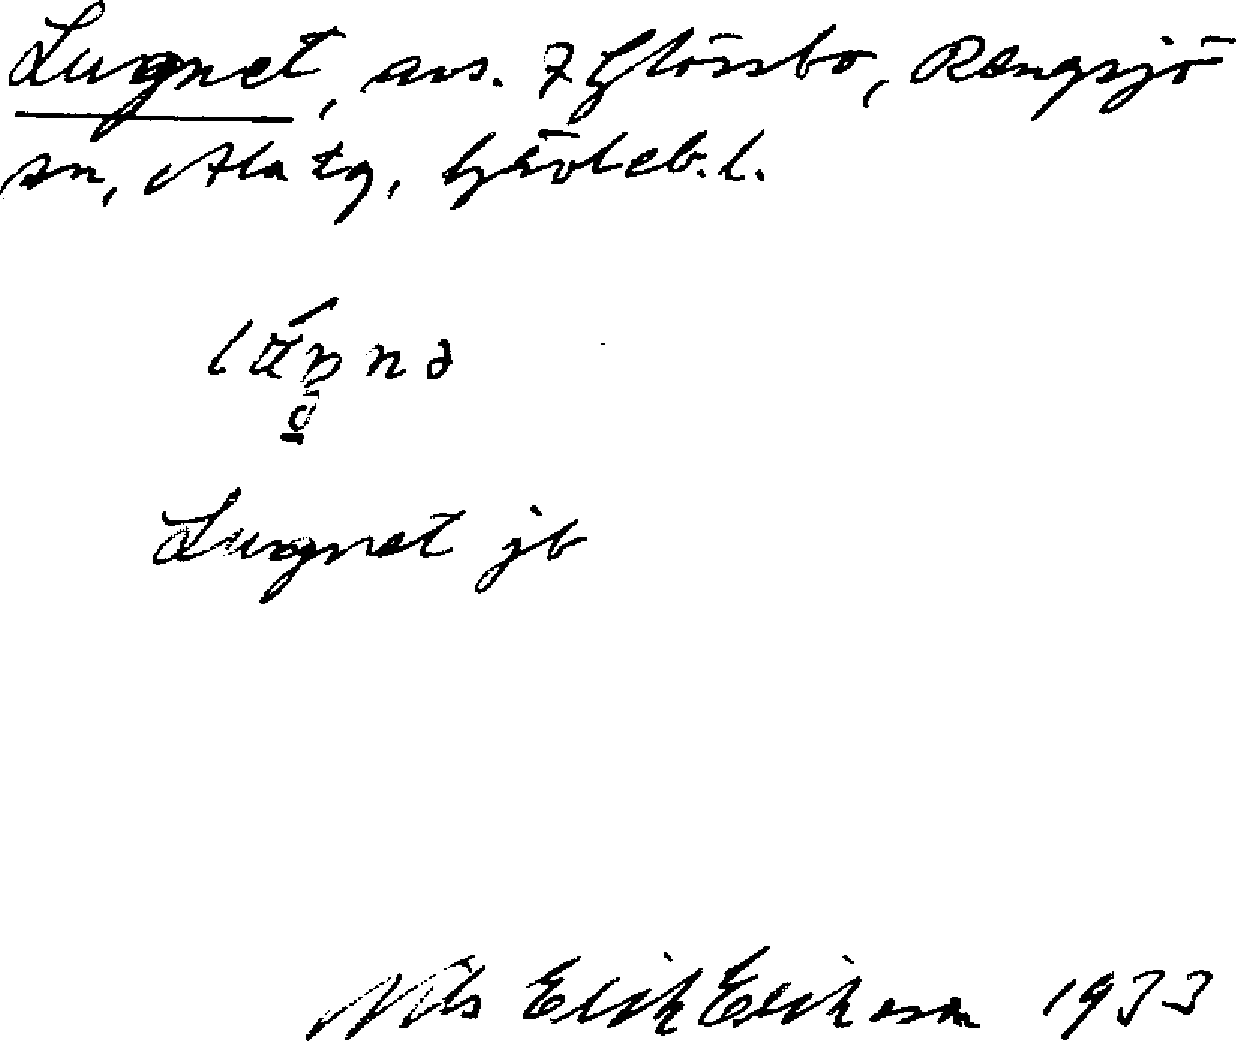 Lugnet, avs. 7 Glössbo, Rengsjö
sn, Ala tg, Gävleb.l.
Lugnet jb
Nils Erik Erikson 1933